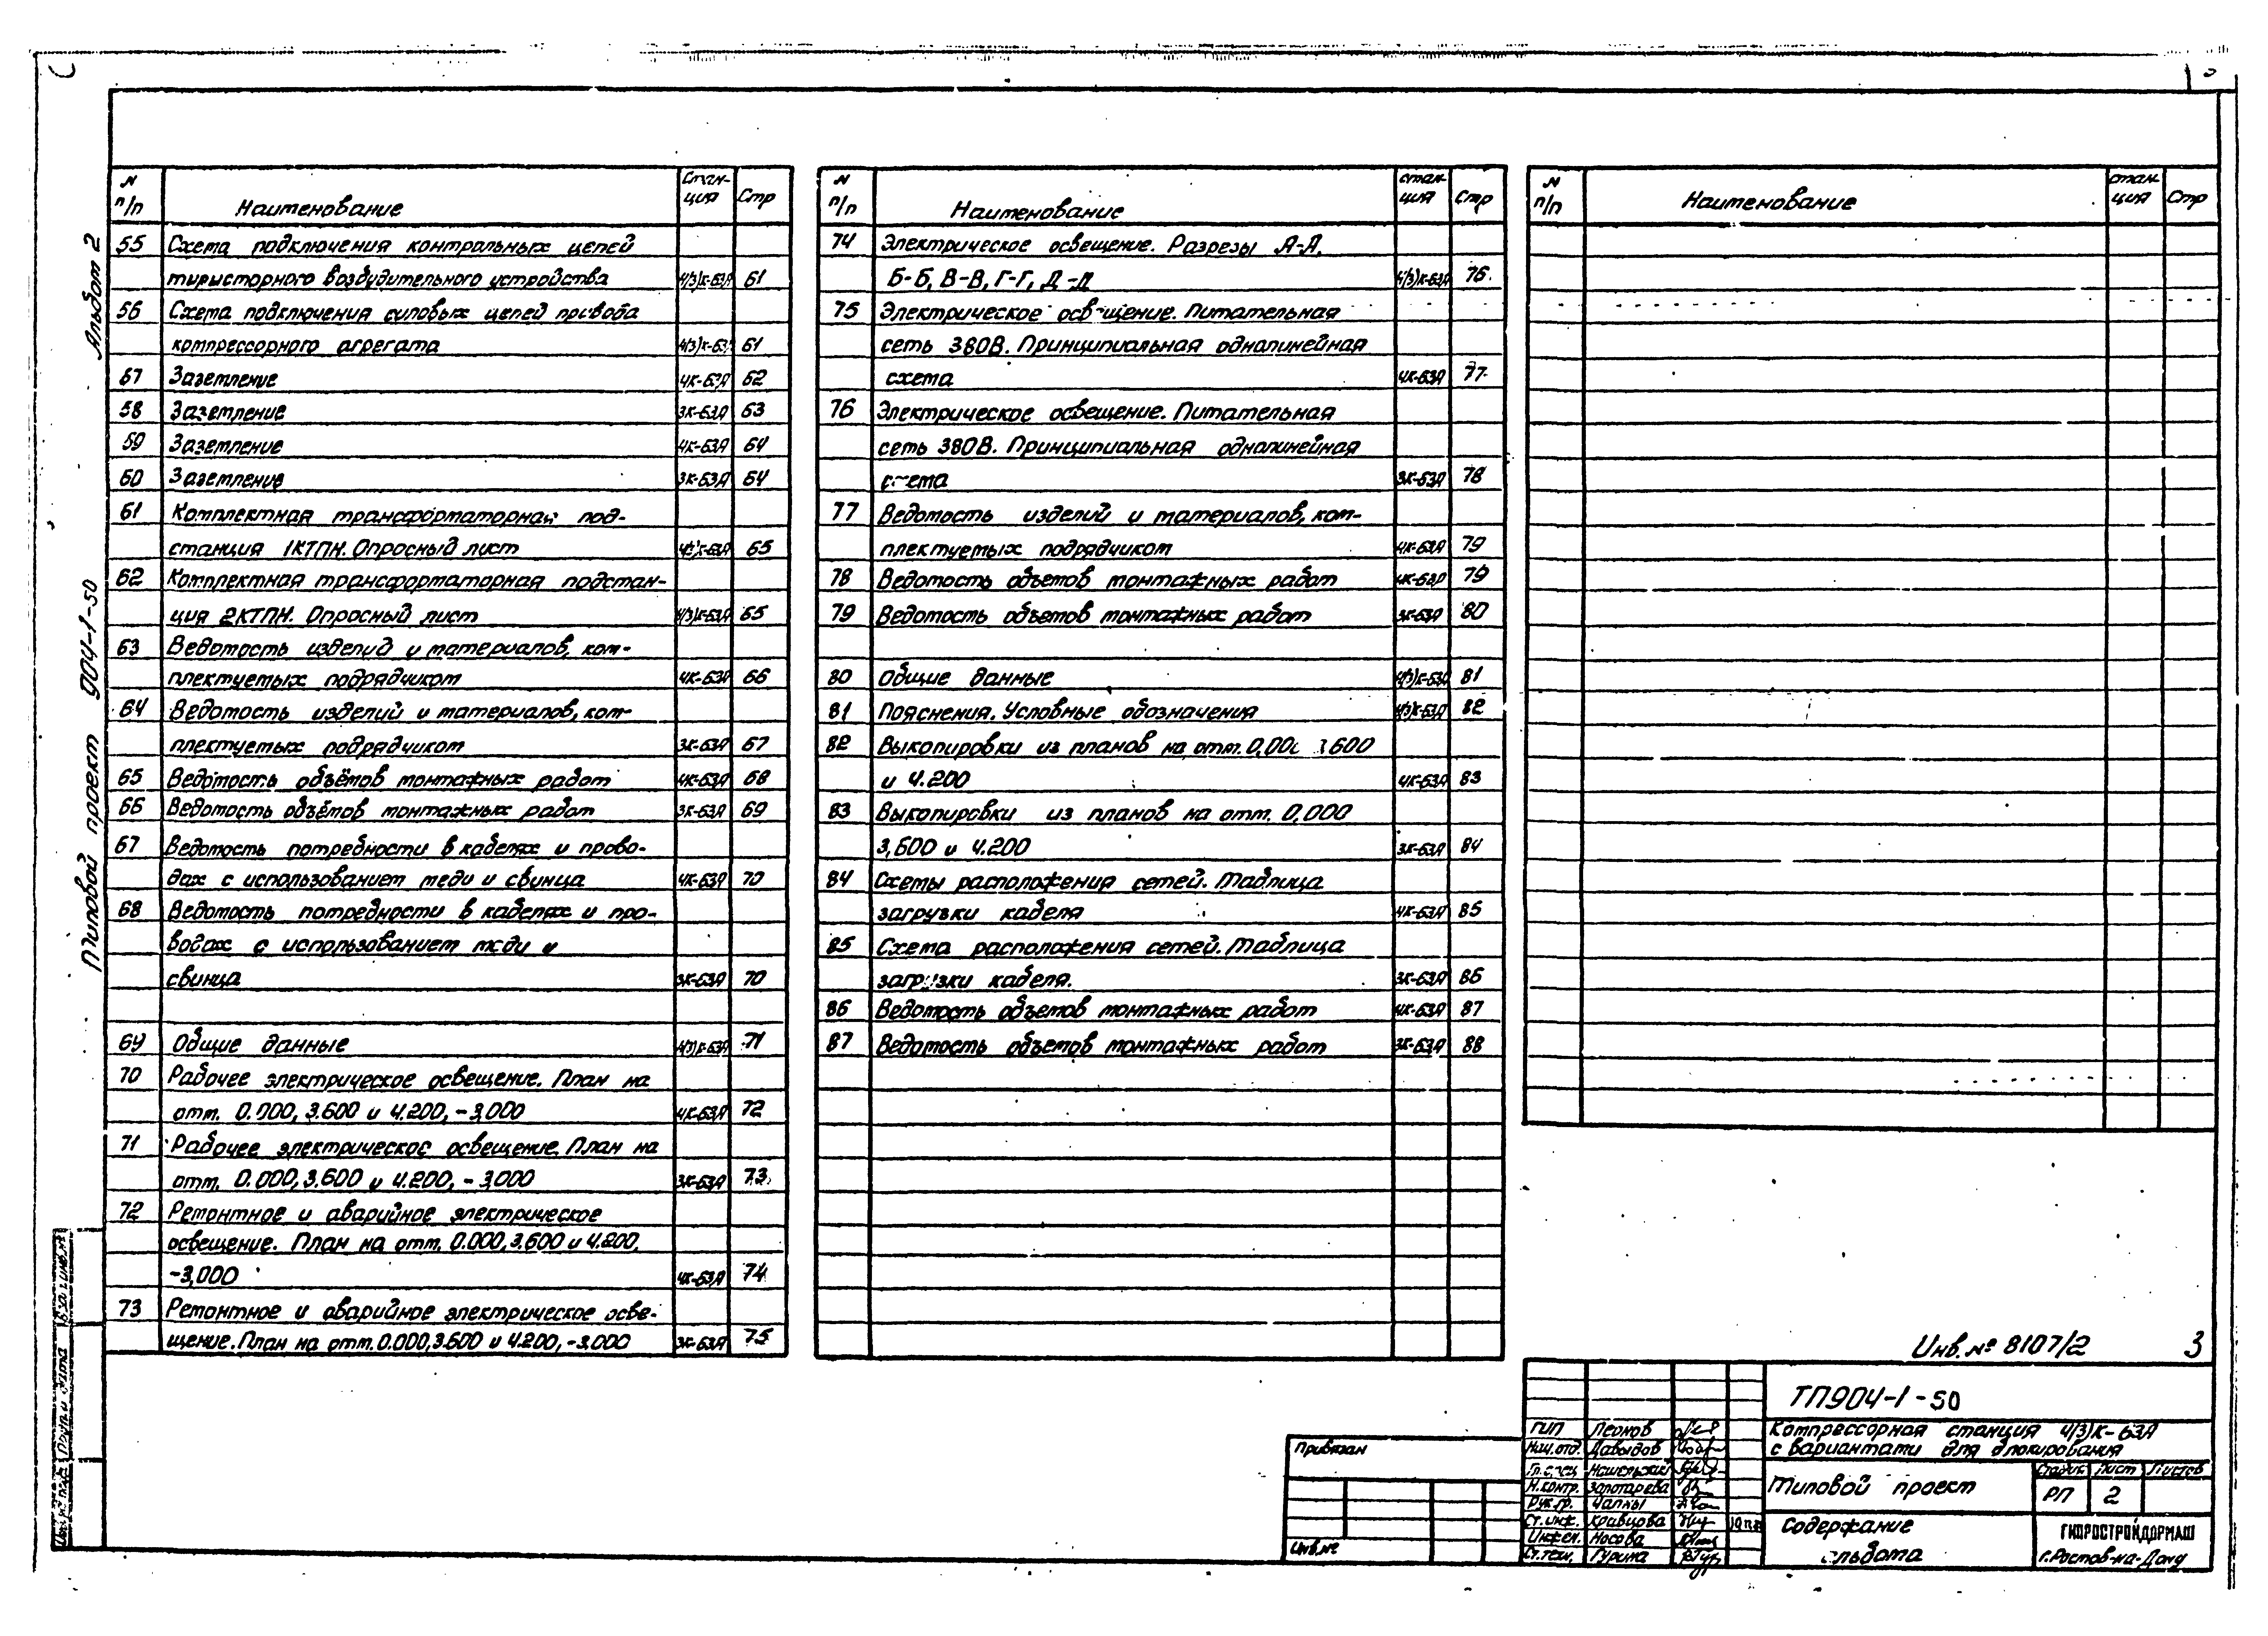 Альбом 2
Типовой проект 904-1-50
N п/п Наименование Стан-ция Стр
55 Схема подключения контрольных цепей
тиристорного возбудительного устройства 4(3)К-63А 61
56 Схема подключения силовых цепей привода
компрессорного агрегата 4(3)К-63А 61
57 Заземление 4К-63А 62
58 Заземление 3К-63А 63
59 Заземление 4К-63А 64
60 Заземление 3К-63А 64
61 Комплектная трансформаторная под-
станция 1КТПН. Опросный лист 4(3)К-63А 65
62 Комплектная трансформаторная подстан-
ция 2КТПН. Опросный лист 4(3)К-63А 65
63 Ведомость изделий и материалов, ком-
плектуемых подрядчиком 4К-63А 66
64 Ведомость изделий и материалов, ком-
плектуемых подрядчиком 3К-63А 67
65 Ведомость объёмов монтажных работ 4К-63А 68
66 Ведомость объёмов монтажных работ 3К-63А 69
67 Ведомость потребности в кабелях и прово-
дах с использованием меди и свинца 4К-63А 70
68 Ведомость потребности в кабелях и про-
водах с использованием меди и
свинца 3К-63А 70
69 Общие данные 4(3)К-63А 71
70 Рабочее электрическое освещение. План на
отм. 0.000, 3.600 и 4.200, -3,000 4К-63А 72
71 Рабочее электрическое освещение. План на
отм. 0.000, 3.600 и 4.200, -3,000 3К-63А 73
72 Ремонтное и аварийное электрическое
освещение. План на отм. 0.000, 3.600 и 4.200,
-3,000 4К-63А 74
73 Ремонтное и аварийное электрическое осве-
щение. План на отм. 0.000, 3.600 и 4.200, -3.000 3К-63А 75
N п/п Наименование стан-ция Стр
74 Электрическое освещение. Разрезы А-А,
Б-Б, В-В, Г-Г, Д-Д 4(3)К-63А 76
75 Электрическое освещение. Питательная
сеть 380В. Принципиальная однолинейная
схема 4К-63А 77
76 Электрическое освещение. Питательная
сеть 380В. Принципиальная однолинейная
схема 3К-63А 78
77 Ведомость изделий и материалов, ком-
плектуемых подрядчиком 4К-63А 79
78 Ведомость объемов монтажных работ 4К-63А 79
79 Ведомость объемов монтажных работ 3К-63А 80
80 Общие данные 4(3)К-63А 81
81 Пояснения. Условные обозначения 4(3)К-63А 82
82 Выкопировки из планов на отм. 0,000 3.600
и 4.200 4К-63А 83
83 Выкопировки из планов на отм. 0,000
3,600 и 4.200 3К-63А 84
84 Схемы расположения сетей. Таблица
загрузки кабеля 4К-63А 85
85 Схема расположения сетей. Таблица
загрузки кабеля. 3К-63А 86
86 Ведомость объемов монтажных работ 4К-63А 87
87 Ведомость объемов монтажных работ 3К-63А 88
N п/п Наименование стан-ция Стр
Инв. № 8107/2 3
ТП904-1-50
Компрессорная станция 4(3)К-63А
с вариантами для блокирования
Типовой проект
Стадия Лист Листов
РП 2
Содержание
альбома
ГИПРОСТРОЙДОРМАШ
г. Ростов-на-Дону
ГИП Леонов
Нач.отд. Давыдов
Гл.спец
Н.контр. Золотарева
Рук.гр.
Ст.инж. Кравцова
Инжен. Носова
Ст.тех. Гурина
Привязан
Инв.№